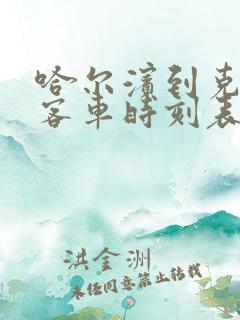 哈尔滨到克
客车时刻表
洪金洲
未经同意禁止转载